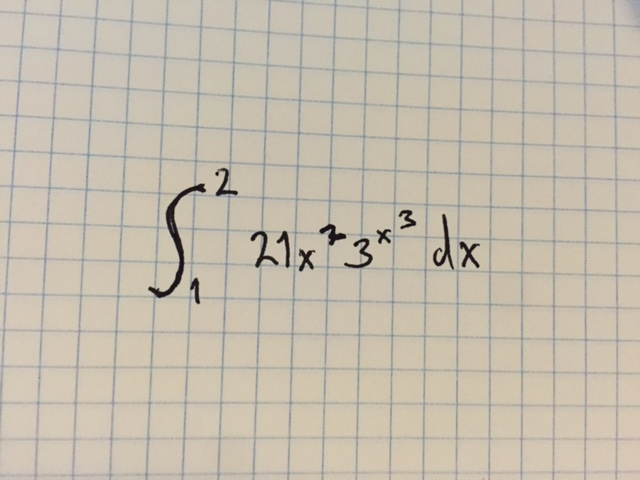 ∫₁² 21x² 3^{x³} dx